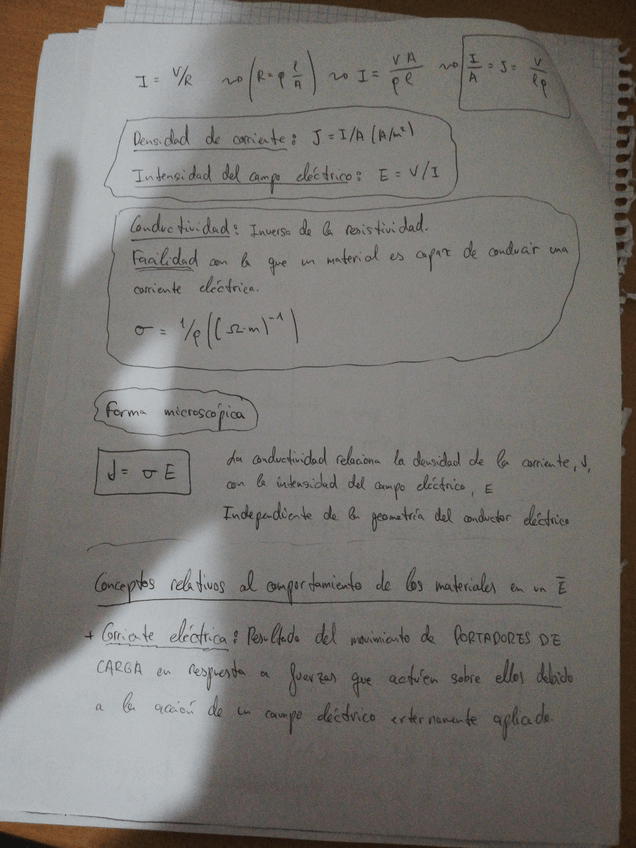 I = V/R ~> (R = ρ l/A) ~> I = VA/ρl ~> I/A = J = V/lρ
Densidad de corriente: J = I/A (A/m²)
Intensidad del campo eléctrico: E = V/I
Conductividad: Inverso de la resistividad.
Facilidad con la que un material es capaz de conducir una
corriente eléctrica.
σ = 1/ρ ((Ω·m)⁻¹)
Forma microscópica
J = σ E
La conductividad relaciona la densidad de la corriente, J,
con la intensidad del campo eléctrico, E
Independiente de la geometría del conductor eléctrico
Conceptos relativos al comportamiento de los materiales en un E̅
+ Corriente eléctrica: Resultado del movimiento de PORTADORES DE
CARGA en respuesta a fuerzas que actúen sobre ellos debido
a la acción de un campo eléctrico externamente aplicado.